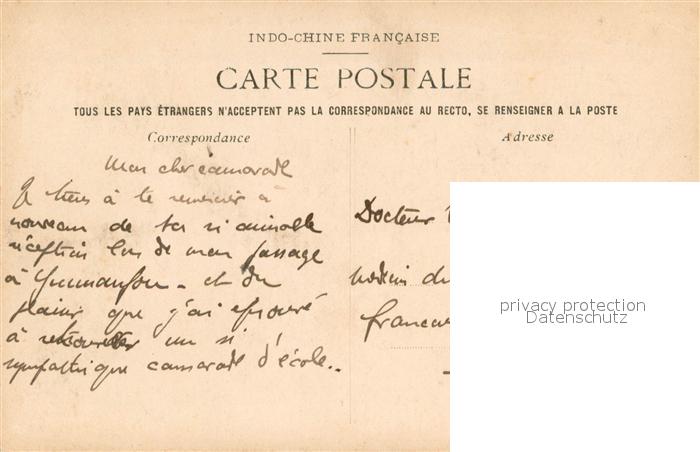 INDO-CHINE FRANÇAISE
CARTE POSTALE
TOUS LES PAYS ÉTRANGERS N'ACCEPTENT PAS LA CORRESPONDANCE AU RECTO, SE RENSEIGNER A LA POSTE
Correspondance
Mon cher camarade
Je tiens à te remercier à
nouveau de ta si aimable
réception lors de mon passage
à Yunnanfou - et du
plaisir que j'ai éprouvé
à retrouver un si
sympathique camarade d'école..
Adresse
Docteur
du
privacy protection
Datenschutz